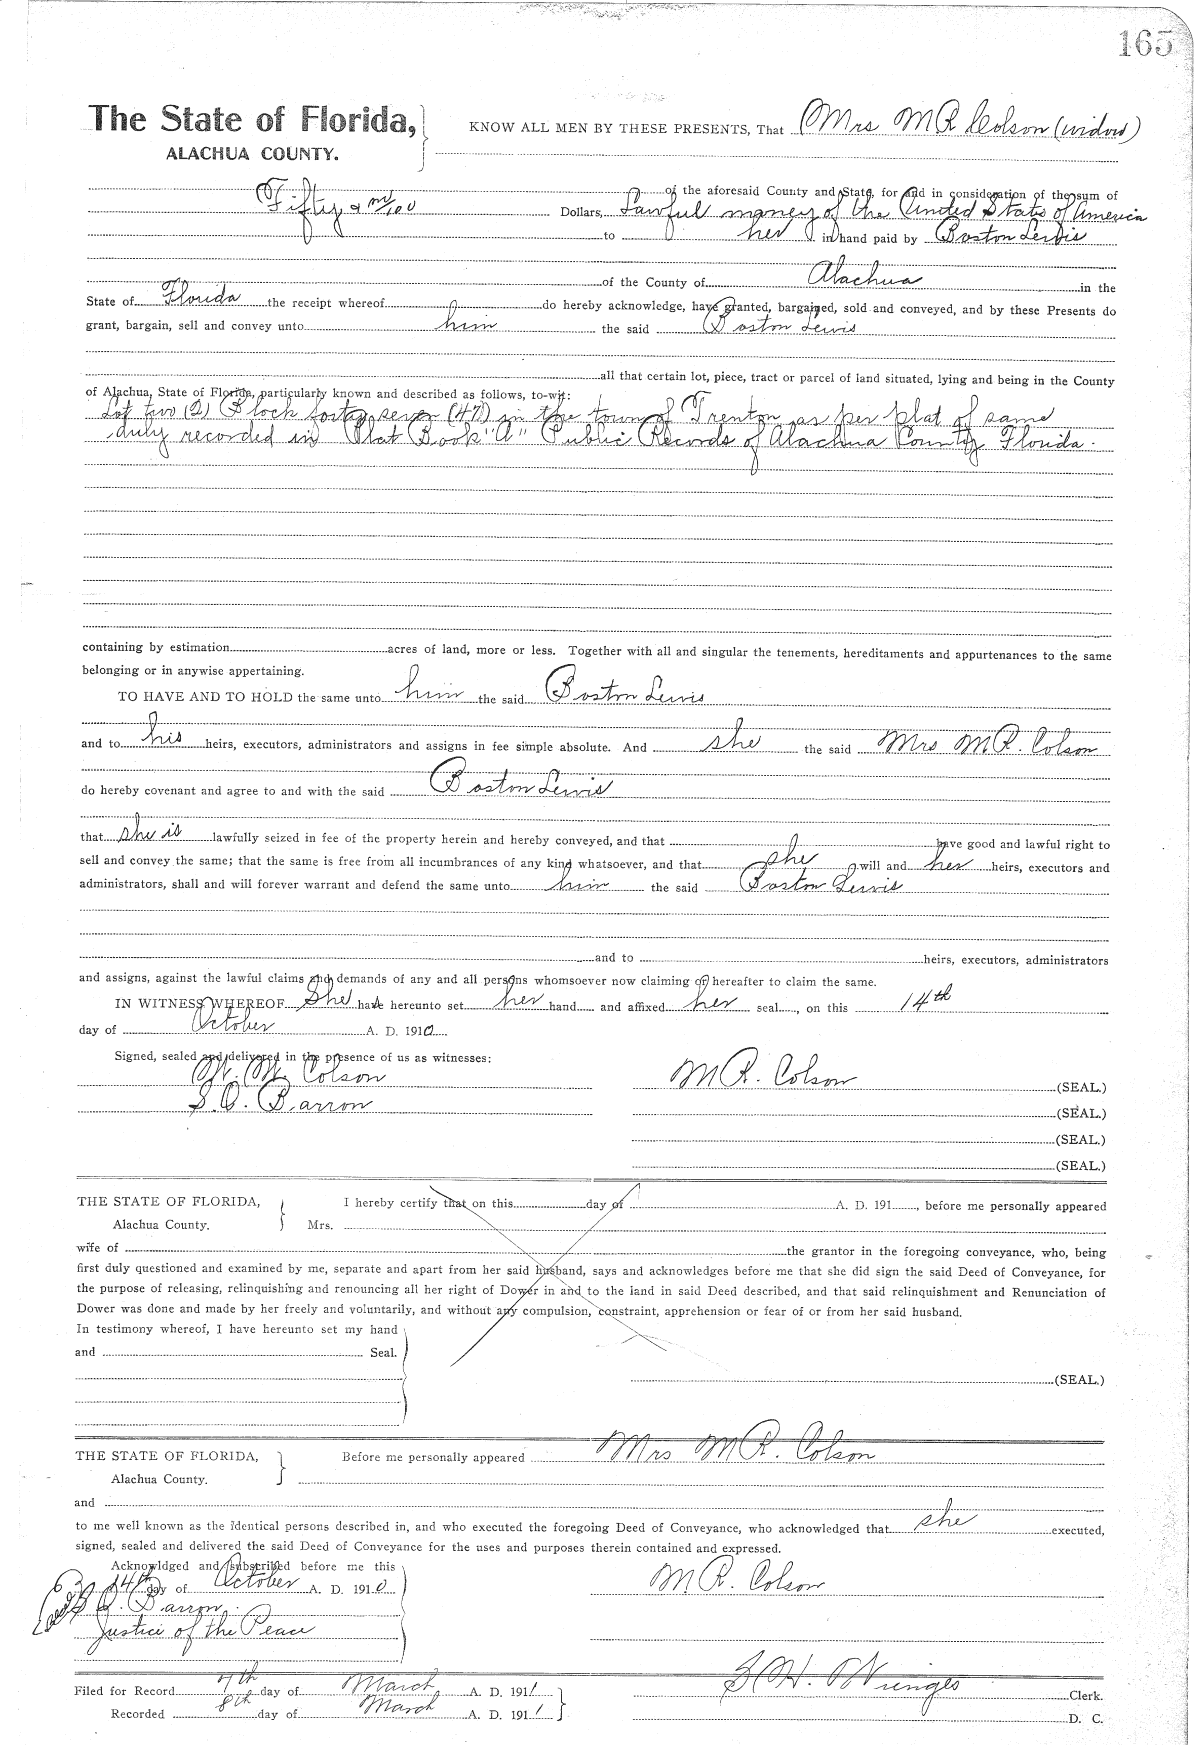 165
The State of Florida, KNOW ALL MEN BY THESE PRESENTS, That Mrs M R Colson (widow)
ALACHUA COUNTY.
of the aforesaid County and State, for and in consideration of the sum of
Fifty & no/100 Dollars, Lawful money of the United States of America
to her in hand paid by Boston Lewis
of the County of Alachua in the
State of Florida the receipt whereof do hereby acknowledge, have granted, bargained, sold and conveyed, and by these Presents do
grant, bargain, sell and convey unto him the said Boston Lewis
all that certain lot, piece, tract or parcel of land situated, lying and being in the County
of Alachua, State of Florida, particularly known and described as follows, to-wit:
Lot two (2) Block forty seven (47) in the town of Trenton as per plat of same
duly recorded in Plat Book "A" Public Records of Alachua County Florida.
containing by estimation acres of land, more or less. Together with all and singular the tenements, hereditaments and appurtenances to the same
belonging or in anywise appertaining.
TO HAVE AND TO HOLD the same unto him the said Boston Lewis
and to his heirs, executors, administrators and assigns in fee simple absolute. And she the said Mrs M R. Colson
do hereby covenant and agree to and with the said Boston Lewis
that she is lawfully seized in fee of the property herein and hereby conveyed, and that have good and lawful right to
sell and convey the same; that the same is free from all incumbrances of any kind whatsoever, and that she will and her heirs, executors and
administrators, shall and will forever warrant and defend the same unto him the said Boston Lewis
and to heirs, executors, administrators
and assigns, against the lawful claims and demands of any and all persons whomsoever now claiming or hereafter to claim the same.
IN WITNESS WHEREOF She have hereunto set her hand and affixed her seal, on this 14th
day of October A. D. 1910
Signed, sealed and delivered in the presence of us as witnesses:
W. M. Colson M R. Colson (SEAL.)
S. O. Barron (SEAL.)
(SEAL.)
(SEAL.)
THE STATE OF FLORIDA, I hereby certify that on this day of A. D. 191, before me personally appeared
Alachua County. Mrs.
wife of the grantor in the foregoing conveyance, who, being
first duly questioned and examined by me, separate and apart from her said husband, says and acknowledges before me that she did sign the said Deed of Conveyance, for
the purpose of releasing, relinquishing and renouncing all her right of Dower in and to the land in said Deed described, and that said relinquishment and Renunciation of
Dower was done and made by her freely and voluntarily, and without any compulsion, constraint, apprehension or fear of or from her said husband.
In testimony whereof, I have hereunto set my hand
and Seal.
(SEAL.)
THE STATE OF FLORIDA, Before me personally appeared Mrs M R. Colson
Alachua County.
and
to me well known as the identical persons described in, and who executed the foregoing Deed of Conveyance, who acknowledged that she executed,
signed, sealed and delivered the said Deed of Conveyance for the uses and purposes therein contained and expressed.
Acknowldged and subscribed before me this
14th day of October A. D. 1910 M R. Colson
Barron
Justice of the Peace
Filed for Record 7th day of March A. D. 1911 S H. Wienges Clerk.
Recorded 8th day of March A. D. 1911 D. C.